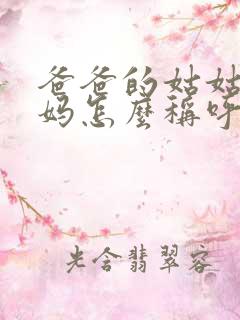 爸爸的姑姑
妈怎麼稱呼
光含翡翠容